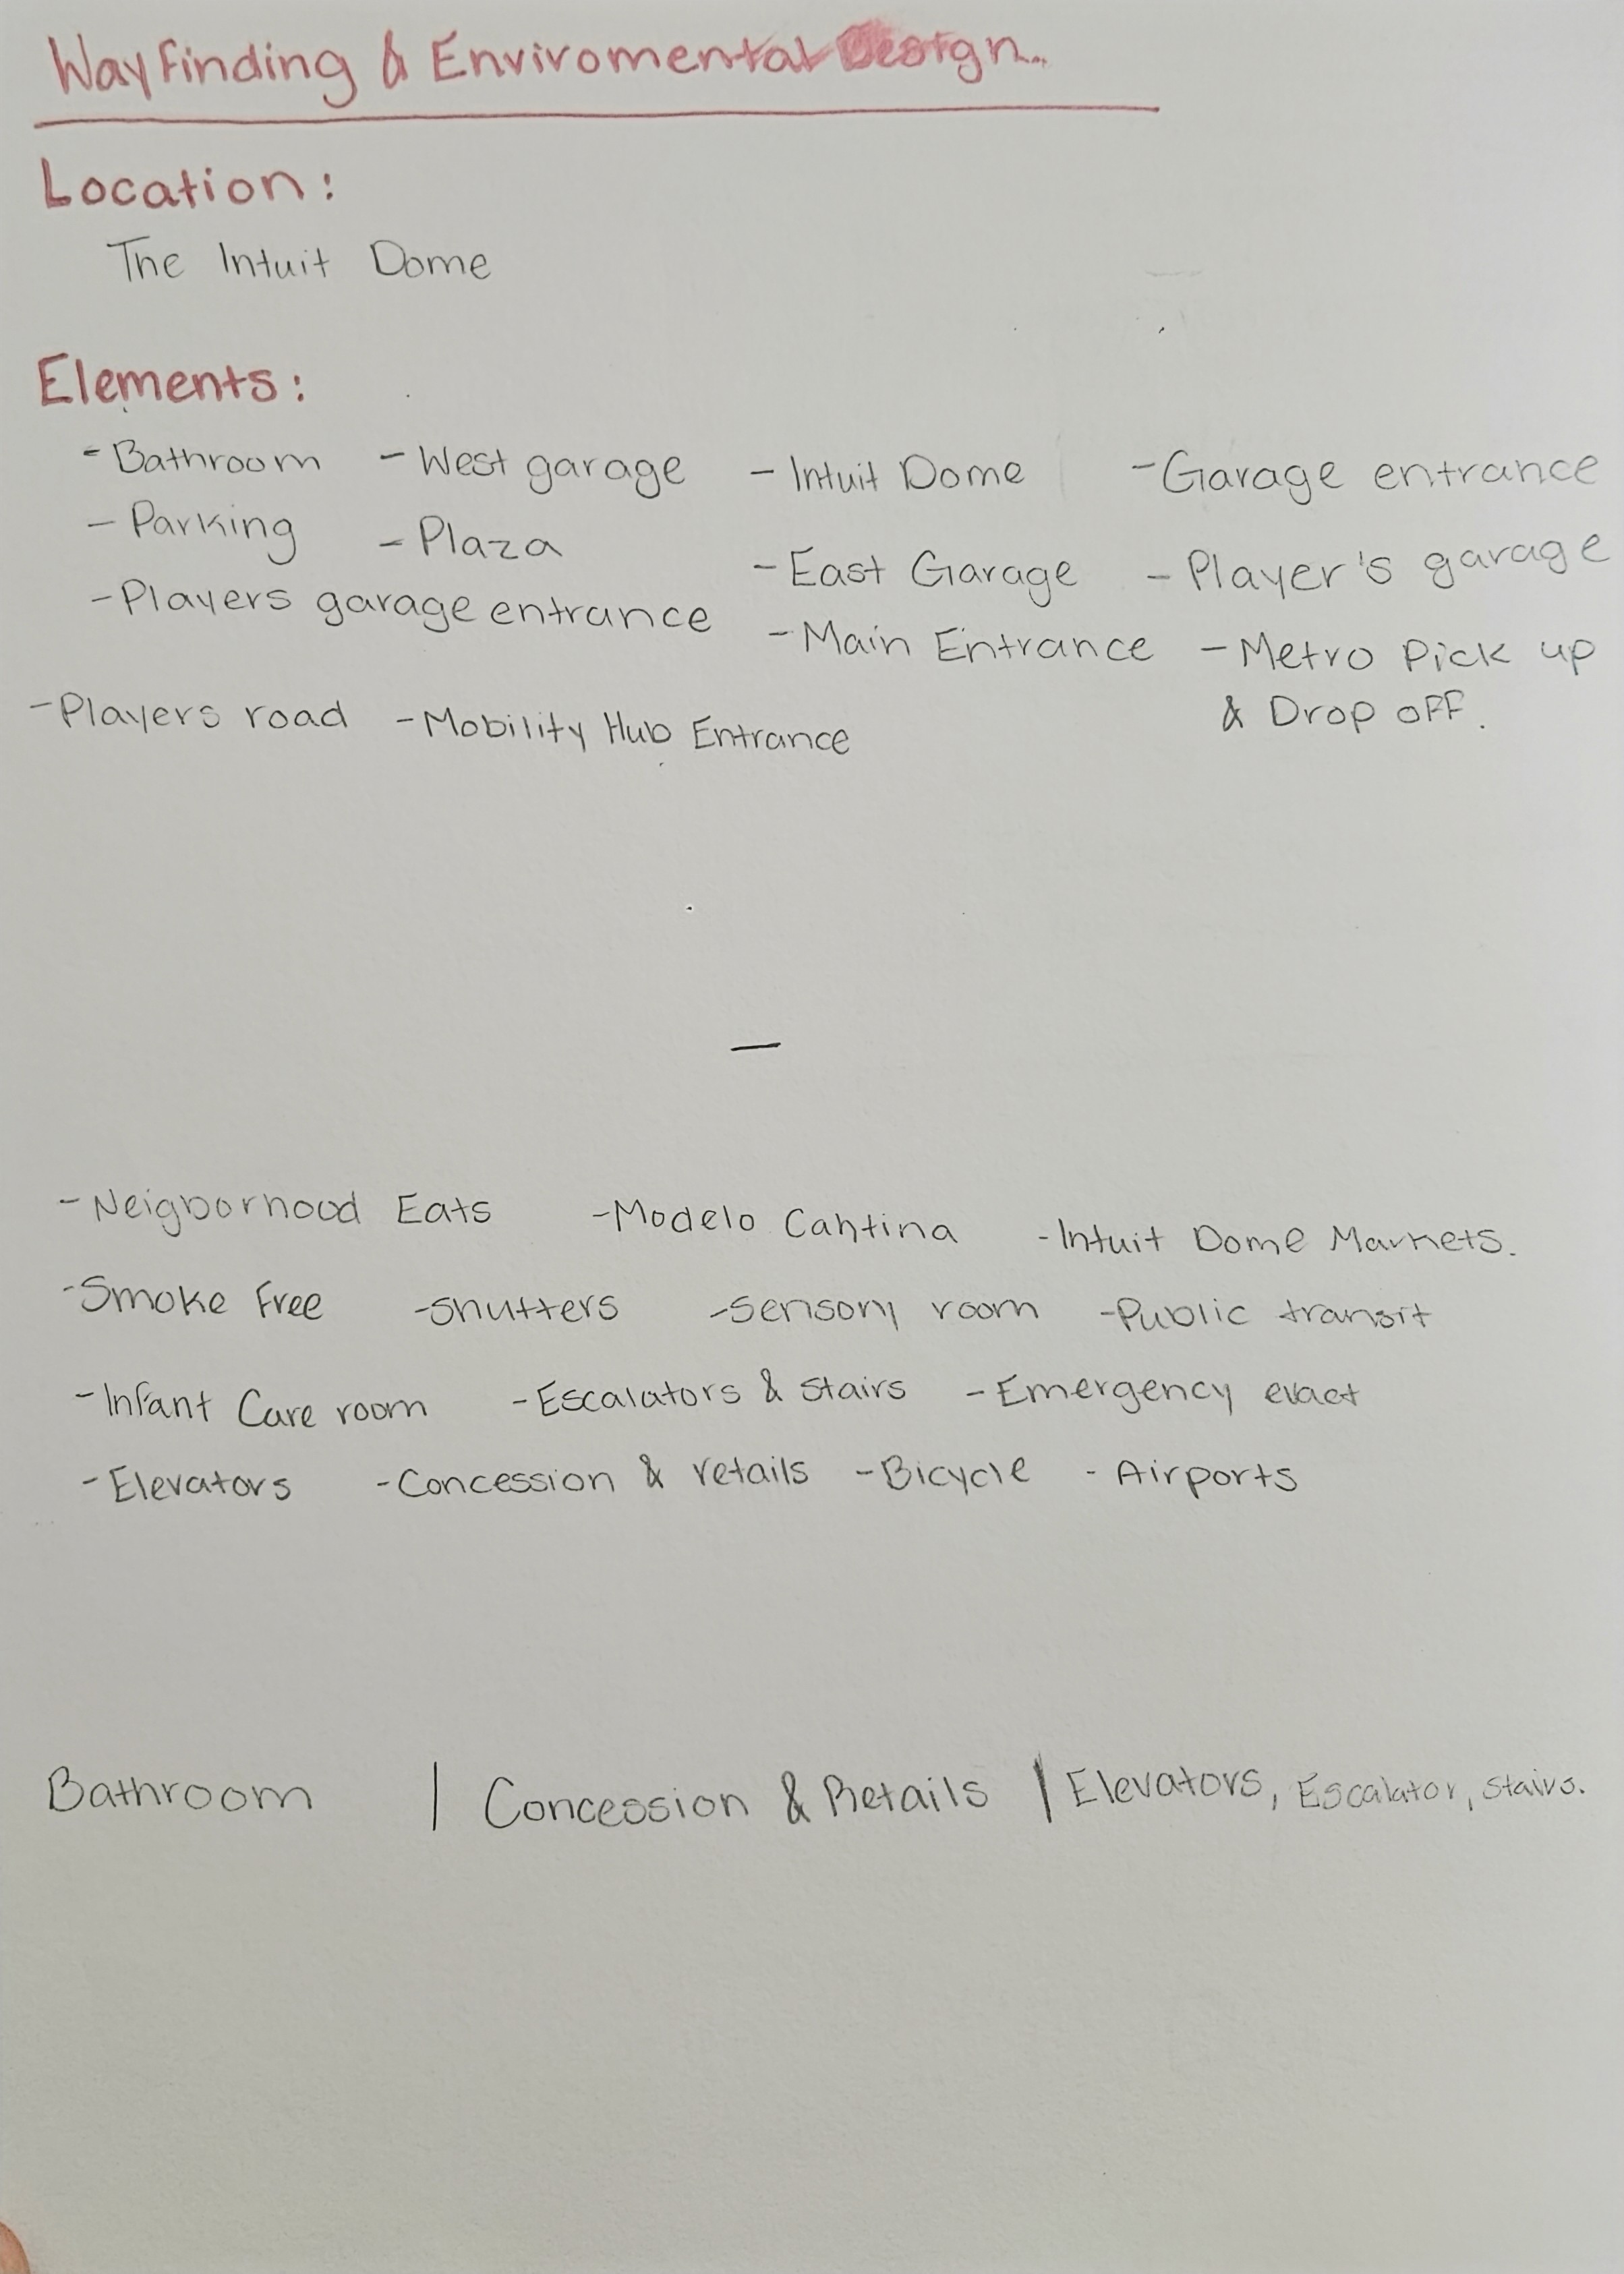 Wayfinding & Enviromental Design..
Location:
The Intuit Dome
Elements:
- Bathroom - West garage - Intuit Dome - Garage entrance
- Parking - Plaza - East Garage - Player's garage
- Players garage entrance - Main Entrance - Metro Pick up
& Drop off.
- Players road - Mobility Hub Entrance
-
- Neigborhood Eats - Modelo Cantina - Intuit Dome Markets.
- Smoke Free - shutters - sensory room - Public transit
- Infant Care room - Escalators & Stairs - Emergency evact
- Elevators - Concession & retails - Bicycle - Airports
Bathroom | Concession & Retails | Elevators, Escalator, stairs.